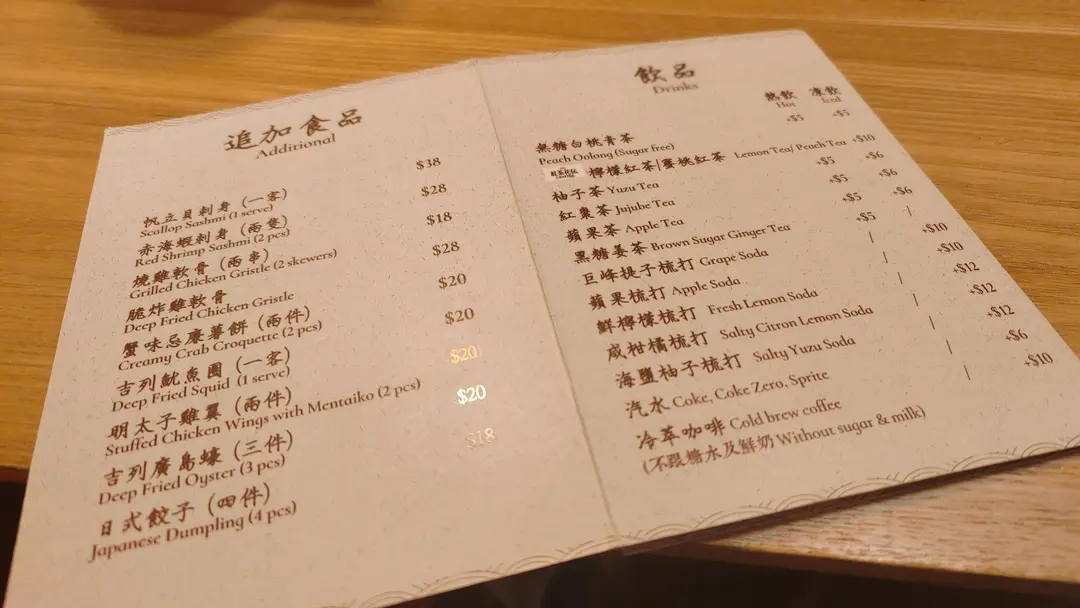 追加食品
Additional
帆立貝刺身 (一客) $38
Scallop Sashmi (1 serve)
赤海蝦刺身 (兩隻) $28
Red Shrimp Sashmi (2 pcs)
燒雞軟骨 (兩串) $18
Grilled Chicken Gristle (2 skewers)
脆炸雞軟骨 $28
Deep Fried Chicken Gristle
蟹味忌廉薯餅 (兩件) $20
Creamy Crab Croquette (2 pcs)
吉列魷魚圈 (一客) $20
Deep Fried Squid (1 serve)
明太子雞翼 (兩件) $20
Stuffed Chicken Wings with Mentaiko (2 pcs)
吉列廣島蠔 (三件) $20
Deep Fried Oyster (3 pcs)
日式餃子 (四件) $18
Japanese Dumpling (4 pcs)
飲品
Drinks
熱飲 凍飲
Hot Iced
無糖白桃青茶 +$5 +$5
Peach Oolong (Sugar free)
檸檬紅茶|蜜桃紅茶 Lemon Tea/ Peach Tea +$10
柚子茶 Yuzu Tea +$5 +$6
紅棗茶 Jujube Tea +$5 +$6
蘋果茶 Apple Tea +$5 +$6
黑糖姜茶 Brown Sugar Ginger Tea +$5 |
巨峰提子梳打 Grape Soda | +$10
蘋果梳打 Apple Soda | +$10
鮮檸檬梳打 Fresh Lemon Soda | +$12
咸柑橘梳打 Salty Citron Lemon Soda | +$12
海鹽柚子梳打 Salty Yuzu Soda | +$12
汽水 Coke, Coke Zero, Sprite | +$6
冷萃咖啡 Cold brew coffee | +$10
(不跟糖水及鮮奶 Without sugar & milk)